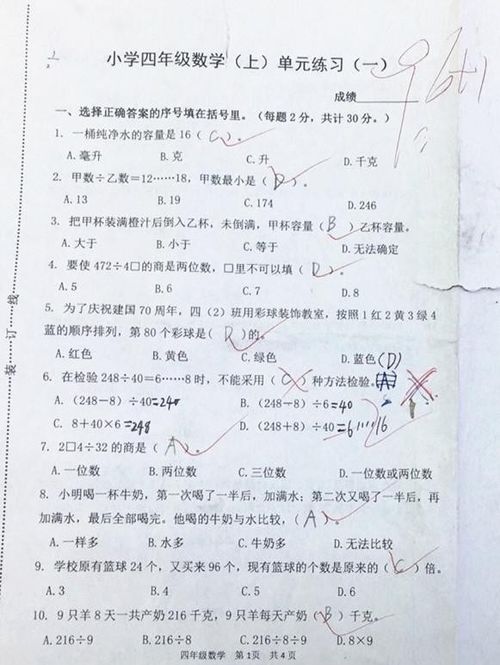 小学四年级数学（上）单元练习（一）
成绩
一、选择正确答案的序号填在括号里。（每题2分，共计30分。）
1. 一桶纯净水的容量是16（ C ）。
A.毫升 B.克 C.升 D.千克
2. 甲数÷乙数=12……18，甲数最小是（ D ）。
A.13 B.19 C.174 D.246
3. 把甲杯装满橙汁后倒入乙杯，未倒满，甲杯容量（ B ）乙杯容量。
A.大于 B.小于 C.等于 D.无法确定
4. 要使472÷4□的商是两位数，□里不可以填（ D ）。
A.5 B.6 C.7 D.8
5. 为了庆祝建国70周年，四（2）班用彩球装饰教室，按照1红2黄3绿4
蓝的顺序排列，第80个彩球是（ D ）的。
A.红色 B.黄色 C.绿色 D.蓝色 (D)
6. 在检验248÷40=6……8时，不能采用（ C ）种方法检验。 A
A.（248－8）÷40 =240 B.（248－8）÷6 =40
C. 8+40×6 =248 D.（248+8）÷40 =6……16
7. 2□4÷32的商是（ A ）。
A.一位数 B.两位数 C.三位数 D.一位数或两位数
8. 小明喝一杯牛奶，第一次喝了一半后，加满水；第二次又喝了一半后，再
加满水，最后全部喝完。他喝的牛奶与水比较，（ A ）。
A.一样多 B.水多 C.牛奶多 D.无法比较
9. 学校原有篮球24个，又买来96个，现有篮球的个数是原来的（ C ）倍。
A.3 B.4 C.5 D.6
10. 9只羊8天一共产奶216千克，9只羊每天产奶（ B ）千克。
A.216÷9 B.216÷8 C.216÷8÷9 D.8×9
四年级数学 第1页 共4页
装 订 线